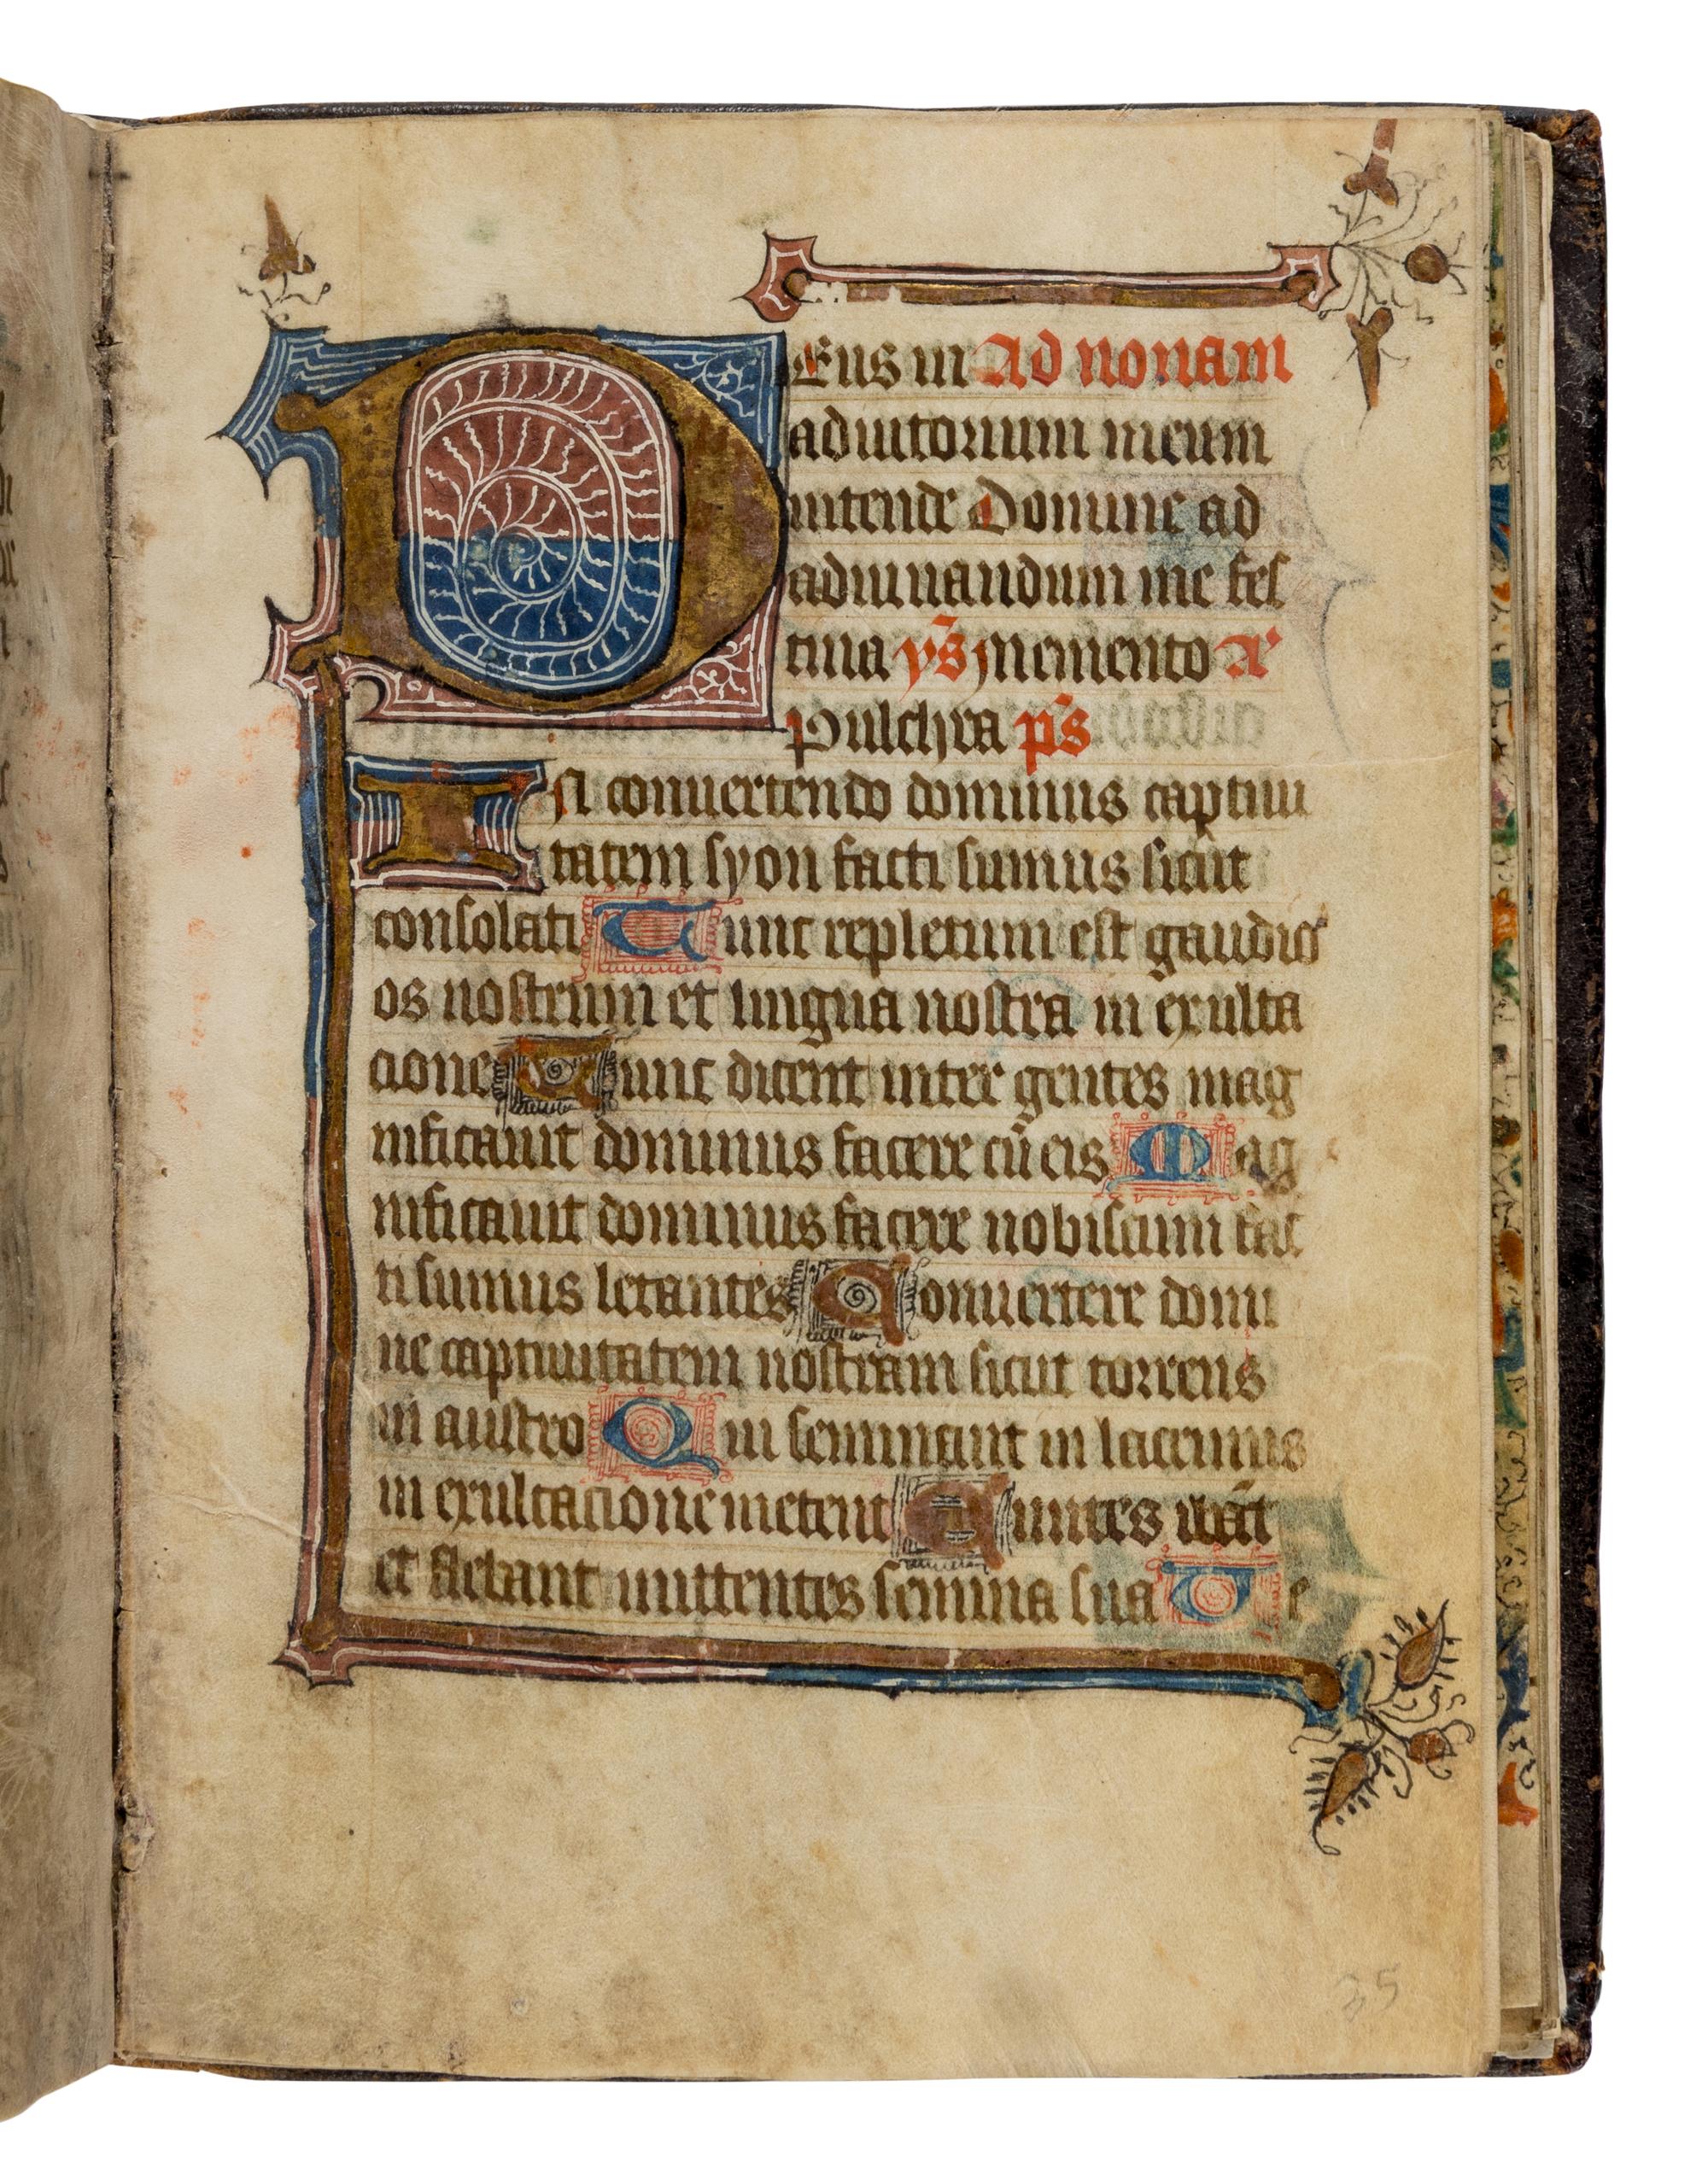 DEus in Ad nonam
adiutorium meum
intende Domine ad
adiuuandum me fes
tina ys memento A
Pulchra ps
In conuertendo dominus captiui
tatem syon facti sumus sicut
consolati Tunc repletum est gaudio
os nostrum et lingua nostra in exulta
cione Tunc dicent inter gentes mag
nificauit dominus facere cū eis Mag
nificauit dominus facere nobiscum fac
ti sumus letantes Conuertere domi
ne captiuitatem nostram sicut torrens
in austro Qui seminant in lacrimis
in exultacione metent Euntes ibāt
et flebant mittentes semina sua Ue
35